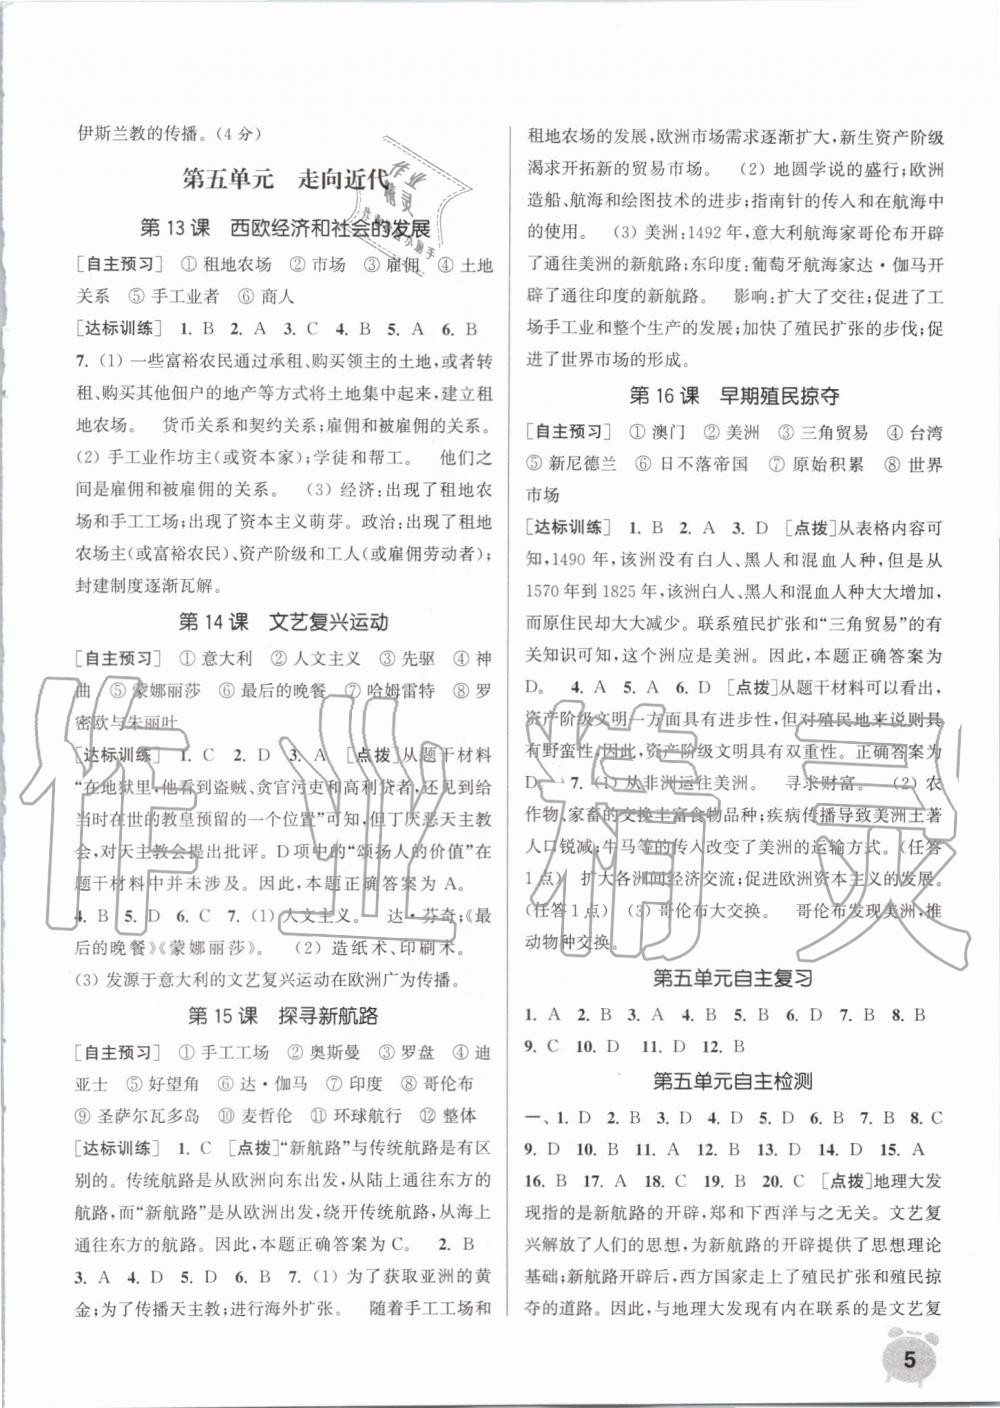 伊斯兰教的传播。(4 分)
第五单元　走向近代
第 13 课　西欧经济和社会的发展
[自主预习]　① 租地农场　② 市场　③ 雇佣　④ 土地
关系　⑤ 手工业者　⑥ 商人
[达标训练]　1. B　2. A　3. C　4. B　5. A　6. B
7. (1) 一些富裕农民通过承租、购买领主的土地,或者转
租、购买其他佃户的地产等方式将土地集中起来,建立租
地农场。　货币关系和契约关系;雇佣和被雇佣的关系。
(2) 手工业作坊主(或资本家);学徒和帮工。　他们之
间是雇佣和被雇佣的关系。　(3) 经济:出现了租地农
场和手工工场;出现了资本主义萌芽。政治:出现了租地
农场主(或富裕农民)、资产阶级和工人(或雇佣劳动者);
封建制度逐渐瓦解。
第 14 课　文艺复兴运动
[自主预习]　① 意大利　② 人文主义　③ 先驱　④ 神
曲　⑤ 蒙娜丽莎　⑥ 最后的晚餐　⑦ 哈姆雷特　⑧ 罗
密欧与朱丽叶
[达标训练]　1. C　2. D　3. A　[点拨]从题干材料
“在地狱里,他看到盗贼、贪官污吏和高利贷者,还看到给
当时在世的教皇预留的一个位置”可知,但丁厌恶天主教
会,对天主教会提出批评。D 项中的“颂扬人的价值”在
题干材料中并未涉及。因此,本题正确答案为 A。
4. B　5. D　6. B　7. (1) 人文主义。　达·芬奇;《最
后的晚餐》《蒙娜丽莎》。　(2) 造纸术、印刷术。
(3) 发源于意大利的文艺复兴运动在欧洲广为传播。
第 15 课　探寻新航路
[自主预习]　① 手工工场　② 奥斯曼　③ 罗盘　④ 迪
亚士　⑤ 好望角　⑥ 达·伽马　⑦ 印度　⑧ 哥伦布
⑨ 圣萨尔瓦多岛　⑩ 麦哲伦　⑪ 环球航行　⑫ 整体
[达标训练]　1. C　[点拨]“新航路”与传统航路是有区
别的。传统航路是从欧洲向东出发,从陆上通往东方的
航路,而“新航路”是从欧洲出发,绕开传统航路,从海上
通往东方的航路。因此,本题正确答案为 C。　2. B
3. A　4. D　5. A　6. B　7. (1) 为了获取亚洲的黄
金;为了传播天主教;进行海外扩张。　随着手工工场和
租地农场的发展,欧洲市场需求逐渐扩大,新生资产阶级
渴求开拓新的贸易市场。　(2) 地圆学说的盛行;欧洲
造船、航海和绘图技术的进步;指南针的传入和在航海中
的使用。　(3) 美洲:1492 年,意大利航海家哥伦布开辟
了通往美洲的新航路;东印度:葡萄牙航海家达·伽马开
辟了通往印度的新航路。　影响:扩大了交往;促进了工
场手工业和整个生产的发展;加快了殖民扩张的步伐;促
进了世界市场的形成。
第 16 课　早期殖民掠夺
[自主预习]　① 澳门　② 美洲　③ 三角贸易　④ 台湾
⑤ 新尼德兰　⑥ 日不落帝国　⑦ 原始积累　⑧ 世界
市场
[达标训练]　1. B　2. A　3. D　[点拨]从表格内容可
知,1490 年,该洲没有白人、黑人和混血人种,但是从
1570 年到 1825 年,该洲白人、黑人和混血人种大大增加,
而原住民却大大减少。联系殖民扩张和“三角贸易”的有
关知识可知,这个洲应是美洲。因此,本题正确答案为
D。　4. A　5. A　6. D　[点拨]从题干材料可以看出,
资产阶级文明一方面具有进步性,但对殖民地来说则具
有野蛮性,因此,资产阶级文明具有双重性。正确答案为
D。　7. (1) 从非洲运往美洲。　寻求财富。　(2) 农
作物、家畜的交换丰富食物品种;疾病传播导致美洲土著
人口锐减;牛马等的传入改变了美洲的运输方式。(任答
1 点)　扩大各洲间经济交流;促进欧洲资本主义的发展。
(任答 1 点)　(3) 哥伦布大交换。　哥伦布发现美洲,推
动物种交换。
第五单元自主复习
1. A　2. B　3. A　4. B　5. B　6. D　7. B　8. B
9. C　10. D　11. D　12. B
第五单元自主检测
一、1. D　2. B　3. D　4. D　5. D　6. B　7. B　8. C
9. D　10. B　11. A　12. B　13. D　14. D　15. A
16. B　17. A　18. C　19. B　20. C　[点拨]地理大发
现指的是新航路的开辟,郑和下西洋与之无关。文艺复
兴解放了人们的思想,为新航路的开辟提供了思想理论
基础;新航路开辟后,西方国家走上了殖民扩张和殖民掠
夺的道路。因此,与地理大发现有内在联系的是文艺复
5
作业精灵
作业
精灵